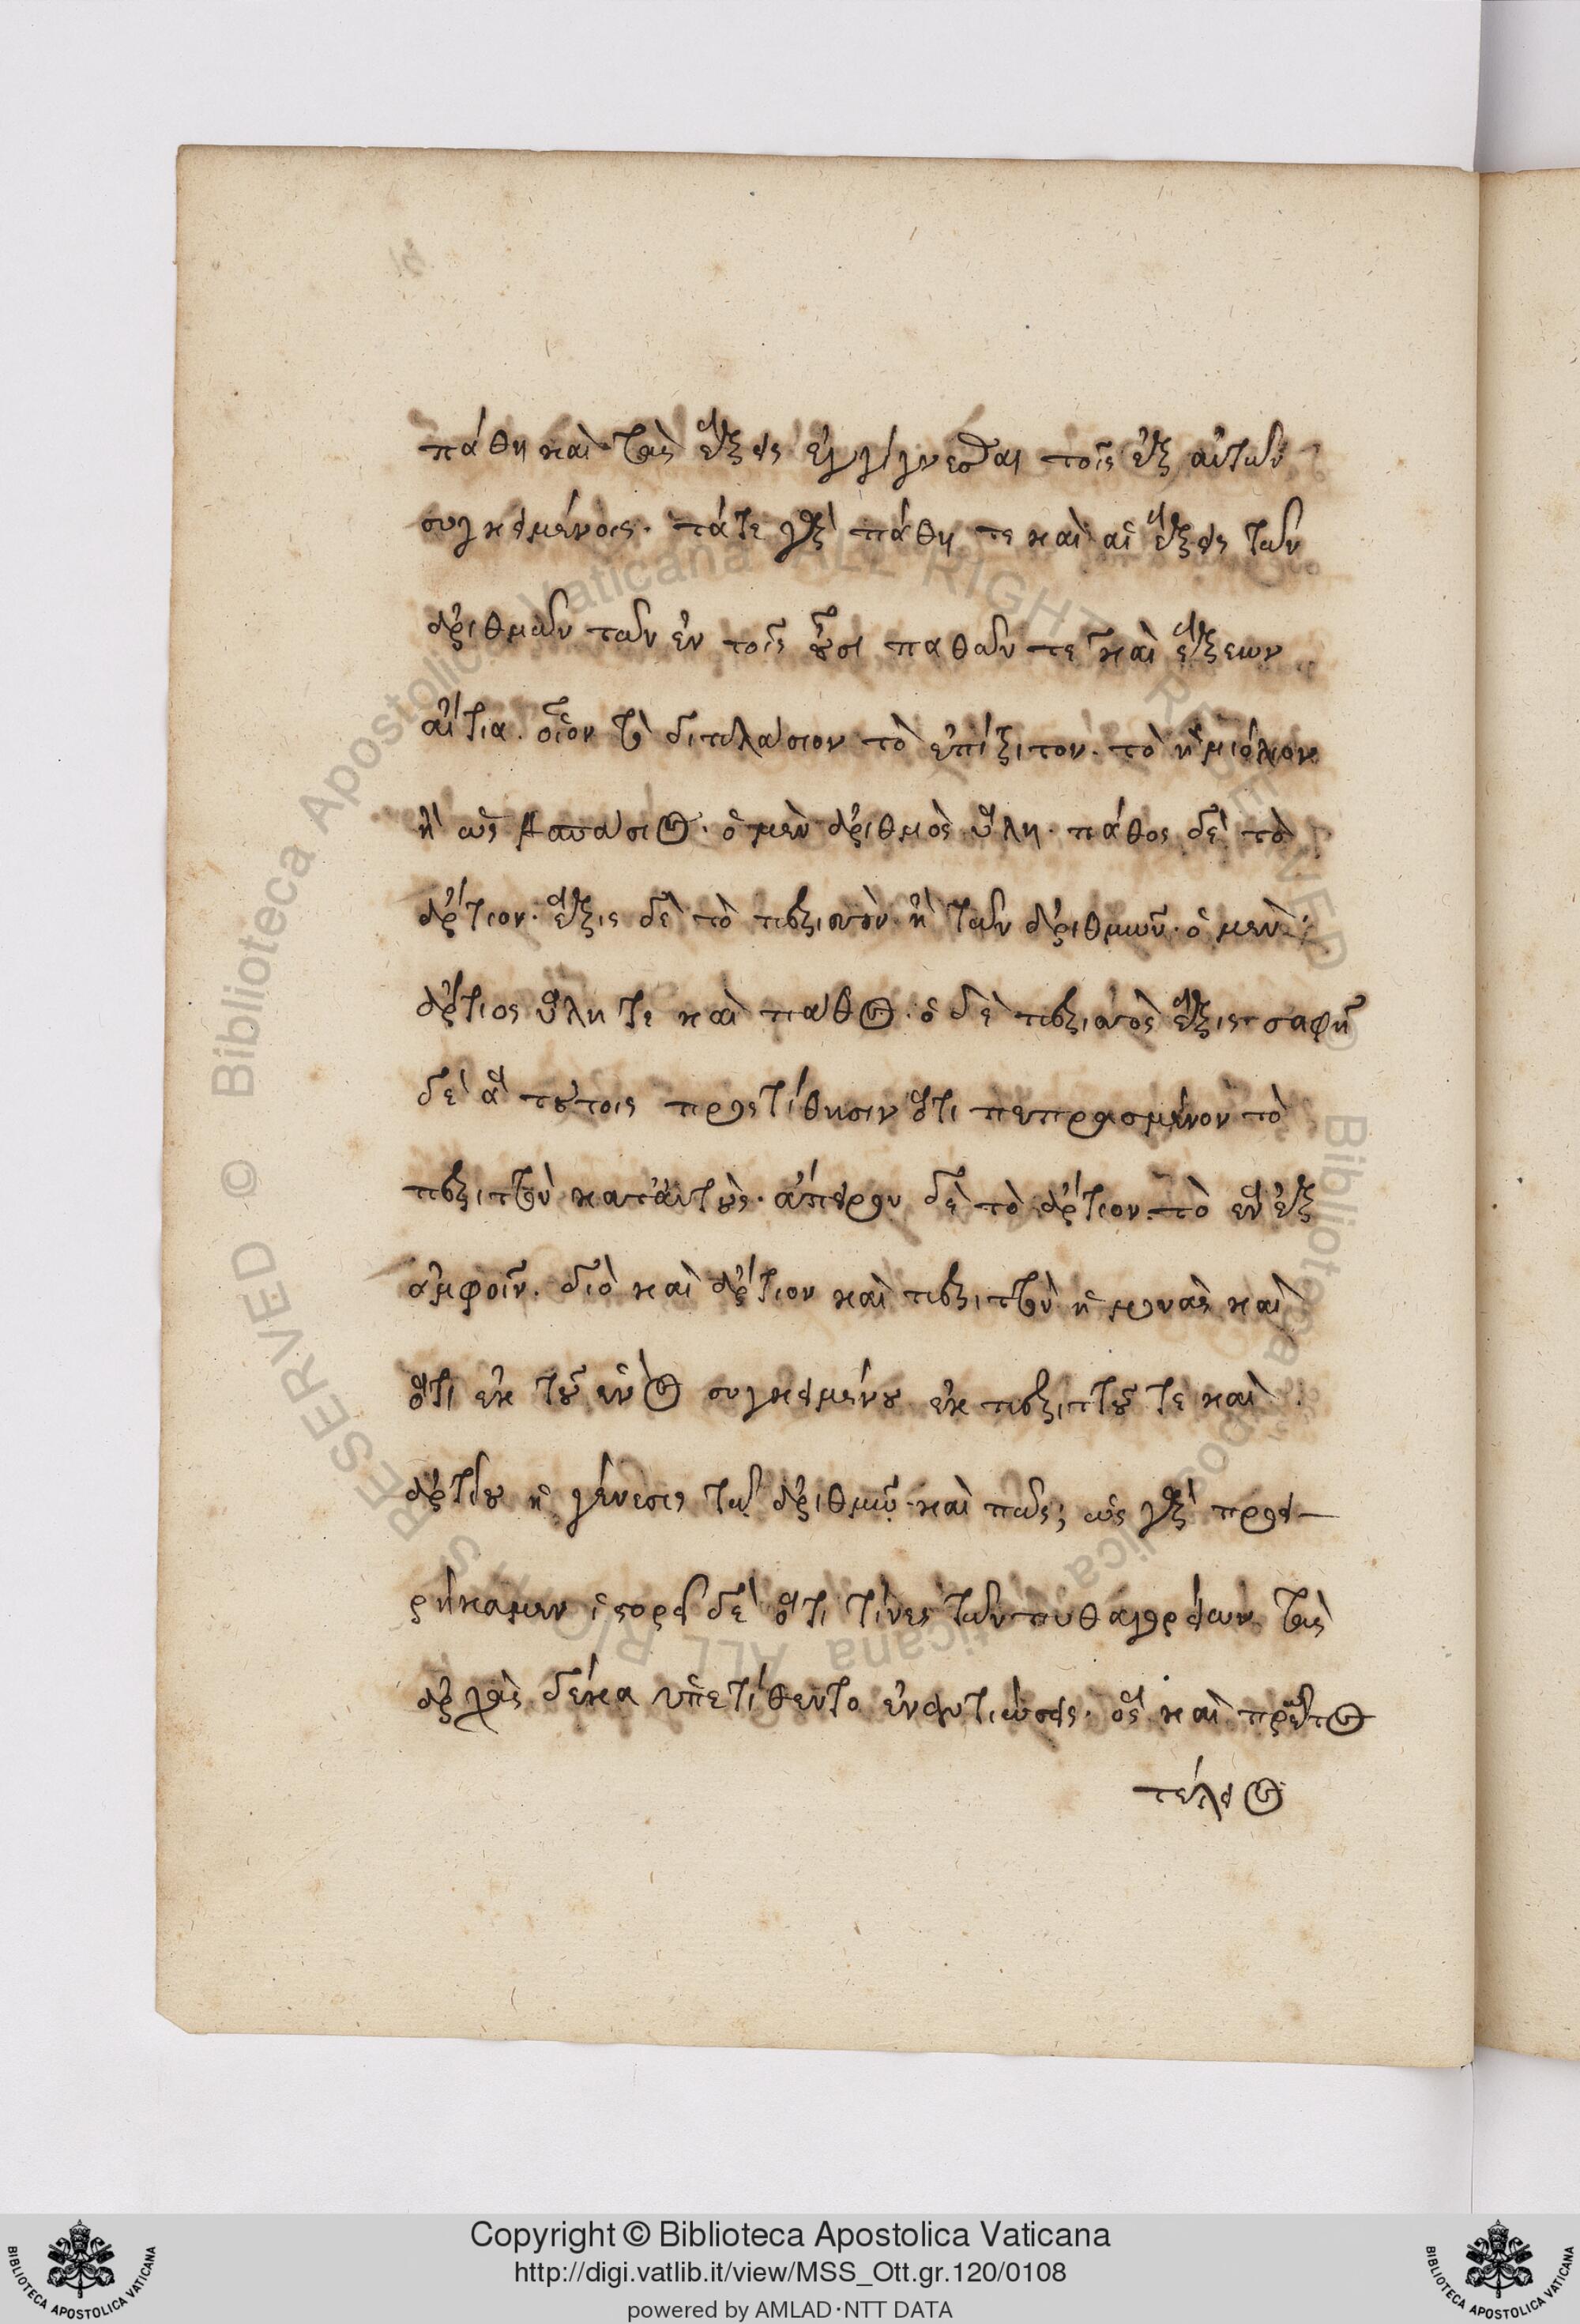 πάθη καὶ τὰς ἕξεις ἐγγίγνεσθαι τοῖς ἐξ αὐτῶν
συγκειμένοις. τά τε γὰρ πάθη τε καὶ αἱ ἕξεις τῶν
ἀριθμῶν τῶν ἐν τοῖς οὖσι παθῶν τε καὶ ἕξεων
αἴτια. οἷον τὸ διπλάσιον τὸ ἐπίτριτον. τὸ ἡμιόλιον
ἢ ὡς ἀσπάσιος. ὁ μὲν ἀριθμὸς ὕλη. πάθος δὲ τὸ
ἄρτιον. ἕξις δὲ τὸ περισσὸν ἢ τῶν ἀριθμῶν. ὁ μὲν
ἄρτιος ὕλη τε καὶ πάθος. ὁ δὲ περισσὸς ἕξις σαφῆ
δὲ ἃ τούτοις προστίθησιν ὅτι πεπερασμένον τὸ
περιττὸν κατ' αὐτούς. ἄπειρον δὲ τὸ ἄρτιον. τὸ ἓν ἐξ
ἀμφοῖν. διὸ καὶ ἄρτιον καὶ περιττὸν ἡ μονὰς καὶ
ὅτι ἐκ τοῦ ἑνὸς συγκειμένου ἐκ περιττοῦ τε καὶ
ἀρτίου ἡ γένεσις τῶν ἀριθμῶν. καὶ πῶς; ὡς γὰρ προει-
ρήκαμεν ἱστορεῖ δὲ ὅτι τινὲς τῶν πυθαγορείων τὰς
ἀρχὰς δέκα ὑπετίθεντο ἐναντιώσεις. ὃς καὶ πρῶτος
τέλος
Copyright © Biblioteca Apostolica Vaticana
http://digi.vatlib.it/view/MSS_Ott.gr.120/0108
powered by AMLAD·NTT DATA